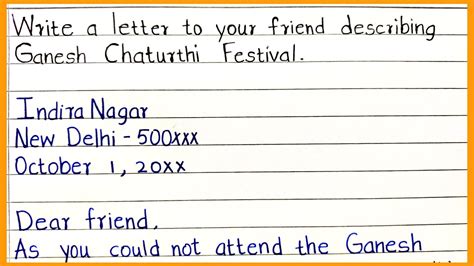 Write a letter to your friend describing
Ganesh Chaturthi Festival.
Indira Nagar
New Delhi - 500xxx
October 1, 20xx
Dear friend,
As you could not attend the Ganesh